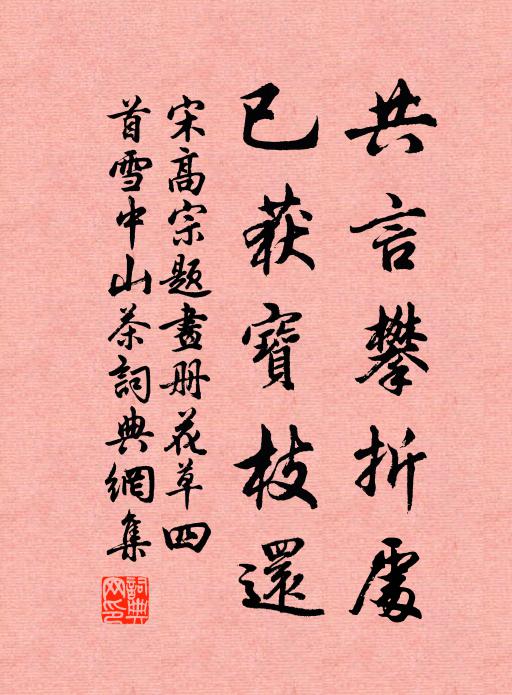 共言攀折處
已获寶枝還
宋高宗題畫册花草四
首雪中山茶詞典網集
詞典网印